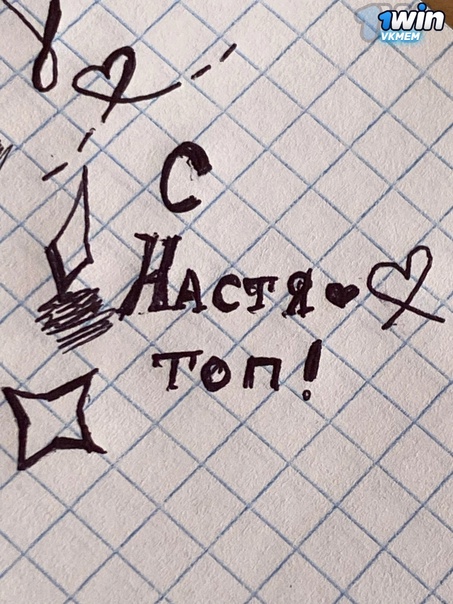 1win
VKMEM
С
Настя
топ!